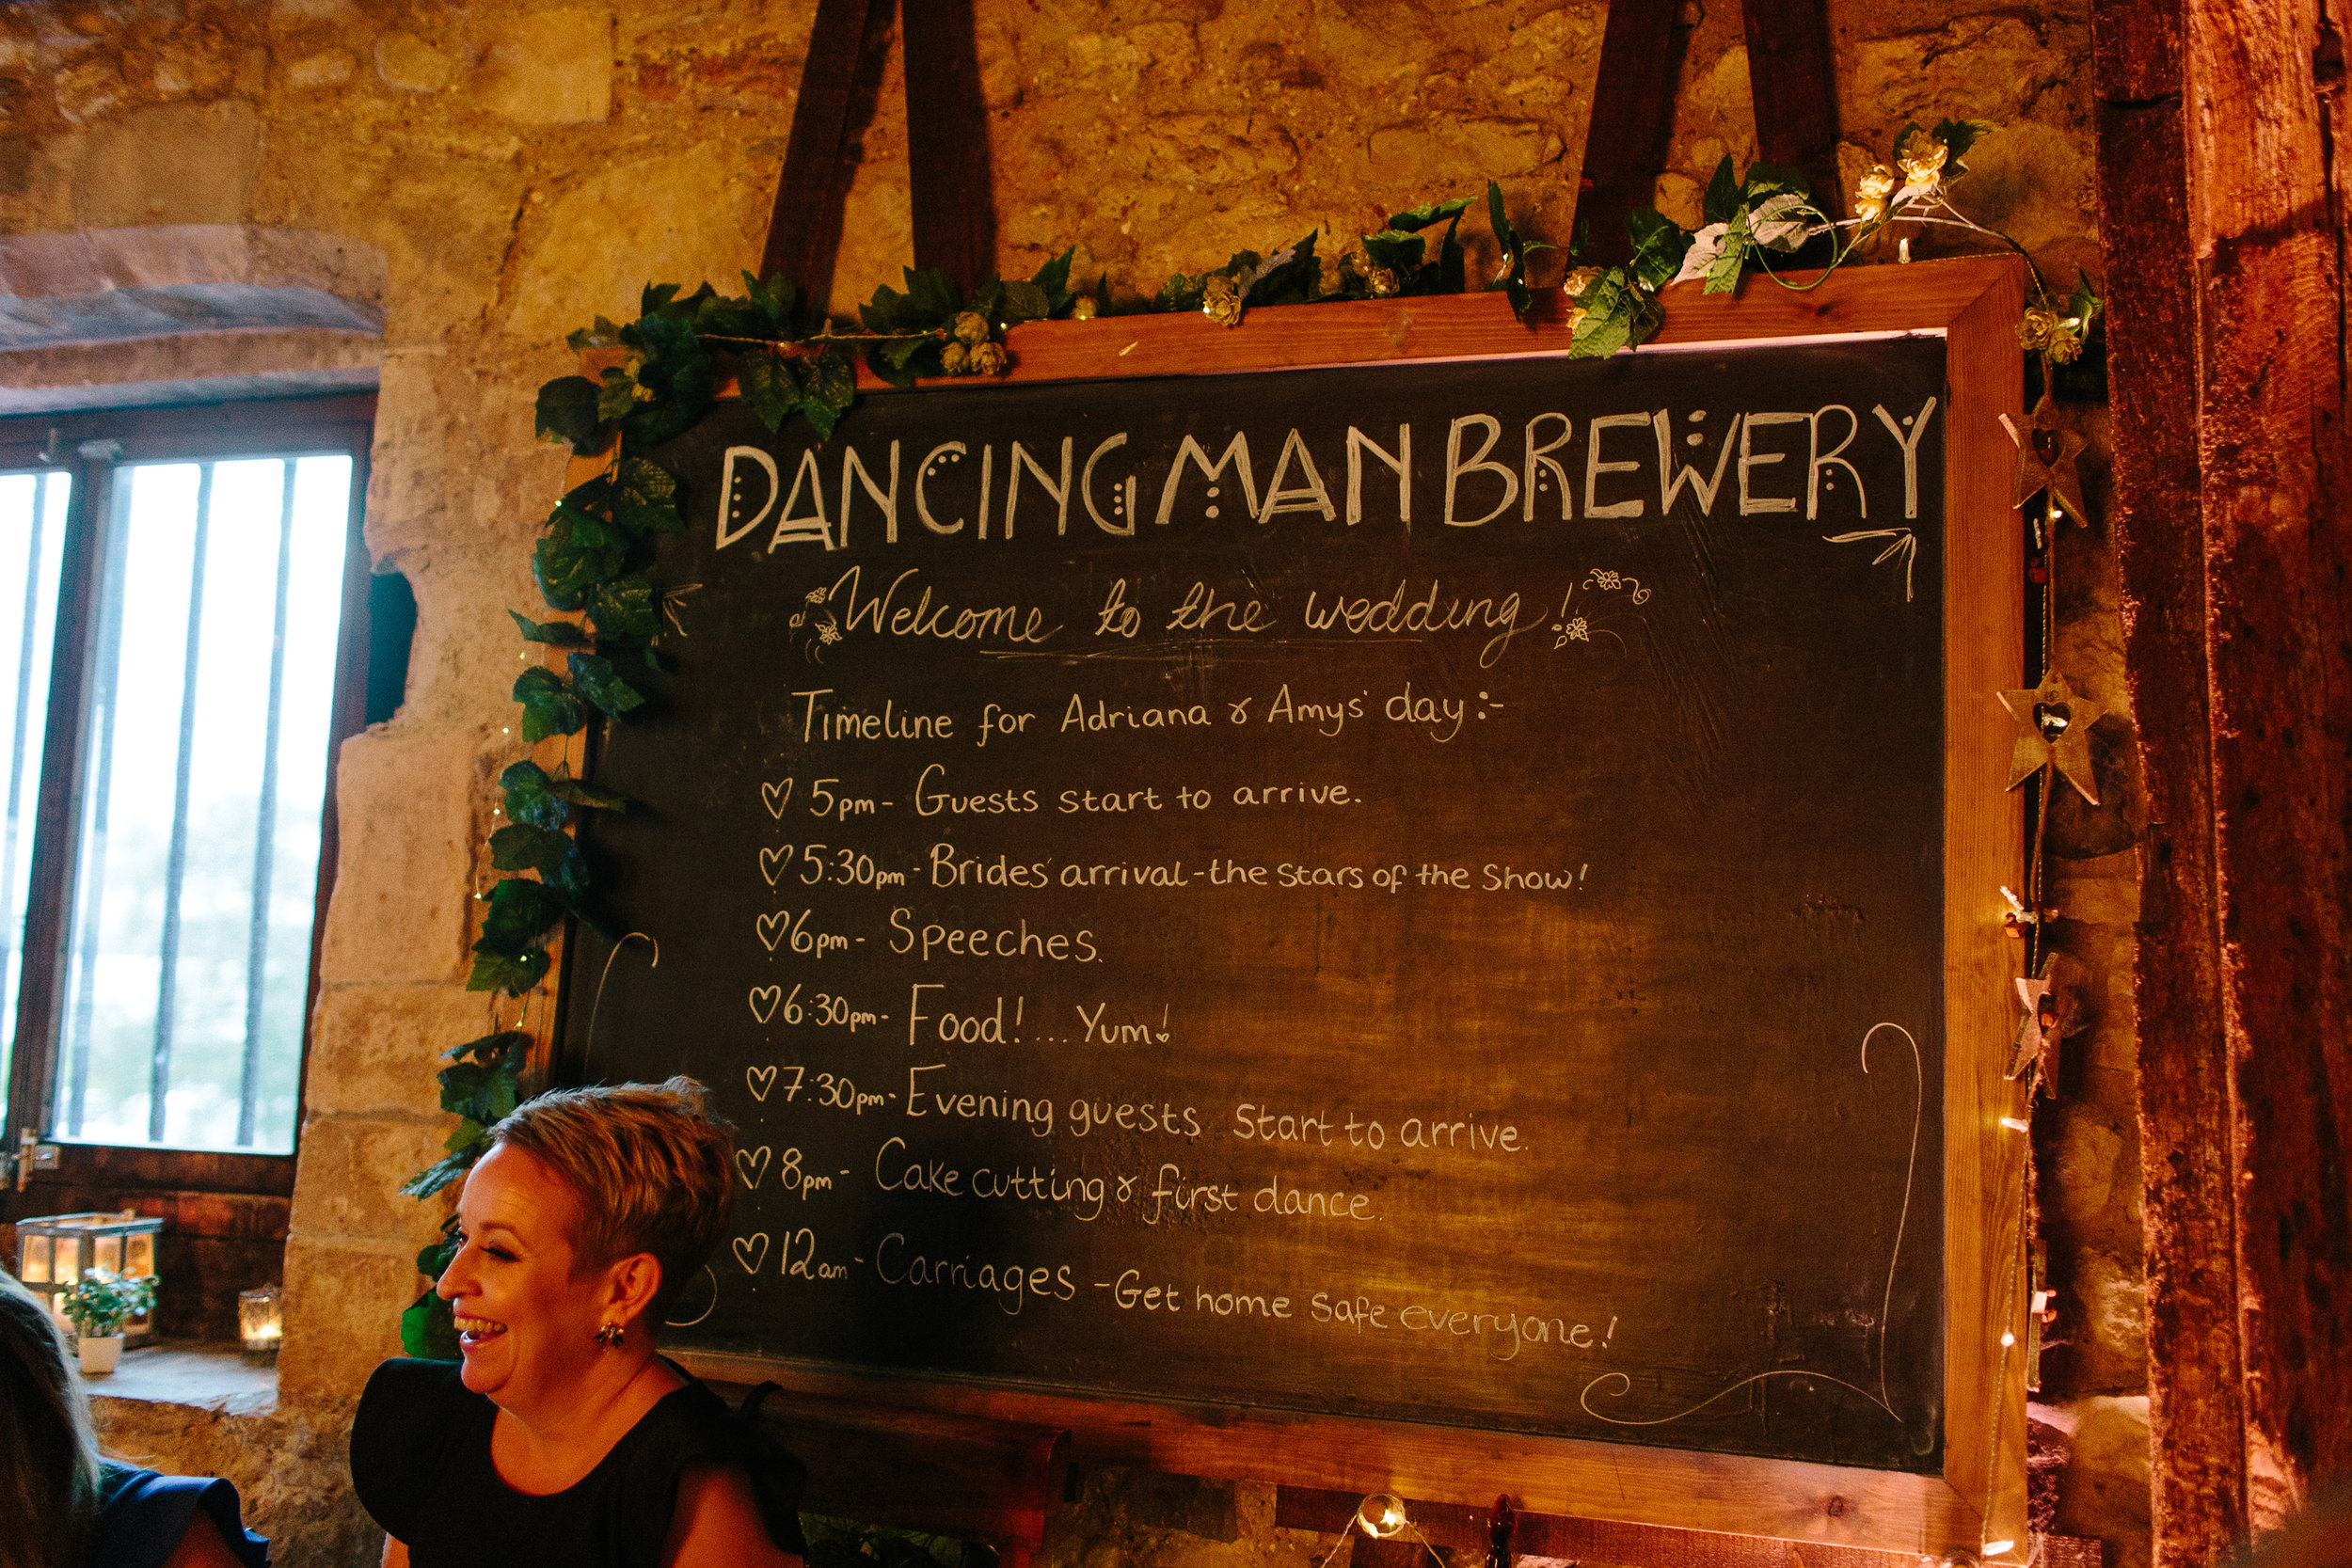 DANCING MAN BREWERY
Welcome to the wedding!
Timeline for Adriana & Amys' day:-
5pm - Guests start to arrive.
5:30pm - Brides' arrival - the stars of the show!
6pm - Speeches.
6:30pm - Food!... Yum!
7:30pm - Evening guests start to arrive.
8pm - Cake cutting & first dance.
12am - Carriages - Get home safe everyone!